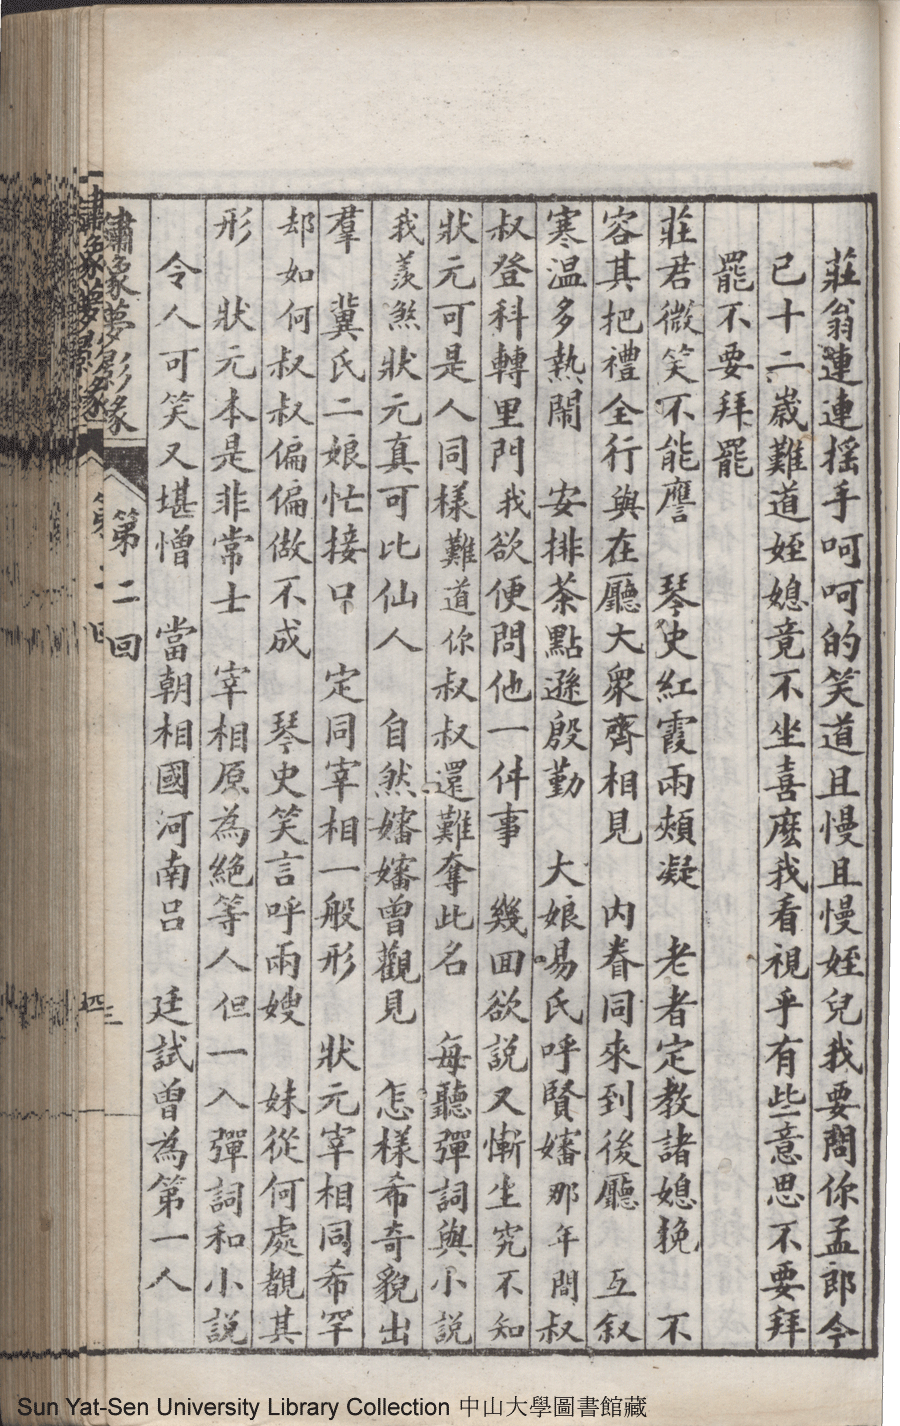 莊翁連連搖手呵呵的笑道且慢且慢姪兒我要問你孟郎今
已十二歲難道姪媳竟不坐喜麽我看視乎有些意思不要拜
罷不要拜罷
莊君微笑不能譍　琴史紅霞兩頰凝　老者定教諸媳挽　不
容其把禮全行　與在廳大衆齊相見　内眷同來到後廳　互叙
寒溫多熱鬧　安排茶點遜殷勤　大娘喝氏呼賢嬸　那年間叔
叔登科轉里門　我欲便問他一件事　幾囬欲說又慚生　究不知
狀元可是人同樣　難道你叔叔還難奪此名　每聽彈詞與小說
我羨煞狀元真可比仙人　自然嬸嬸曾觀見　怎樣希奇貌出
羣　冀氏二娘忙接口　定同宰相一般形　狀元宰相同希罕
却如何叔叔偏偏做不成　琴史笑言呼兩嫂　妹從何處覩其
形　狀元本是非常士　宰相原為絶等人　但一入彈詞和小說
令人可笑又堪憎　當朝相國河南呂　廷試曾為第一人
繡像夢影緣　第二回　三
Sun Yat-Sen University Library Collection 中山大學圖書館藏